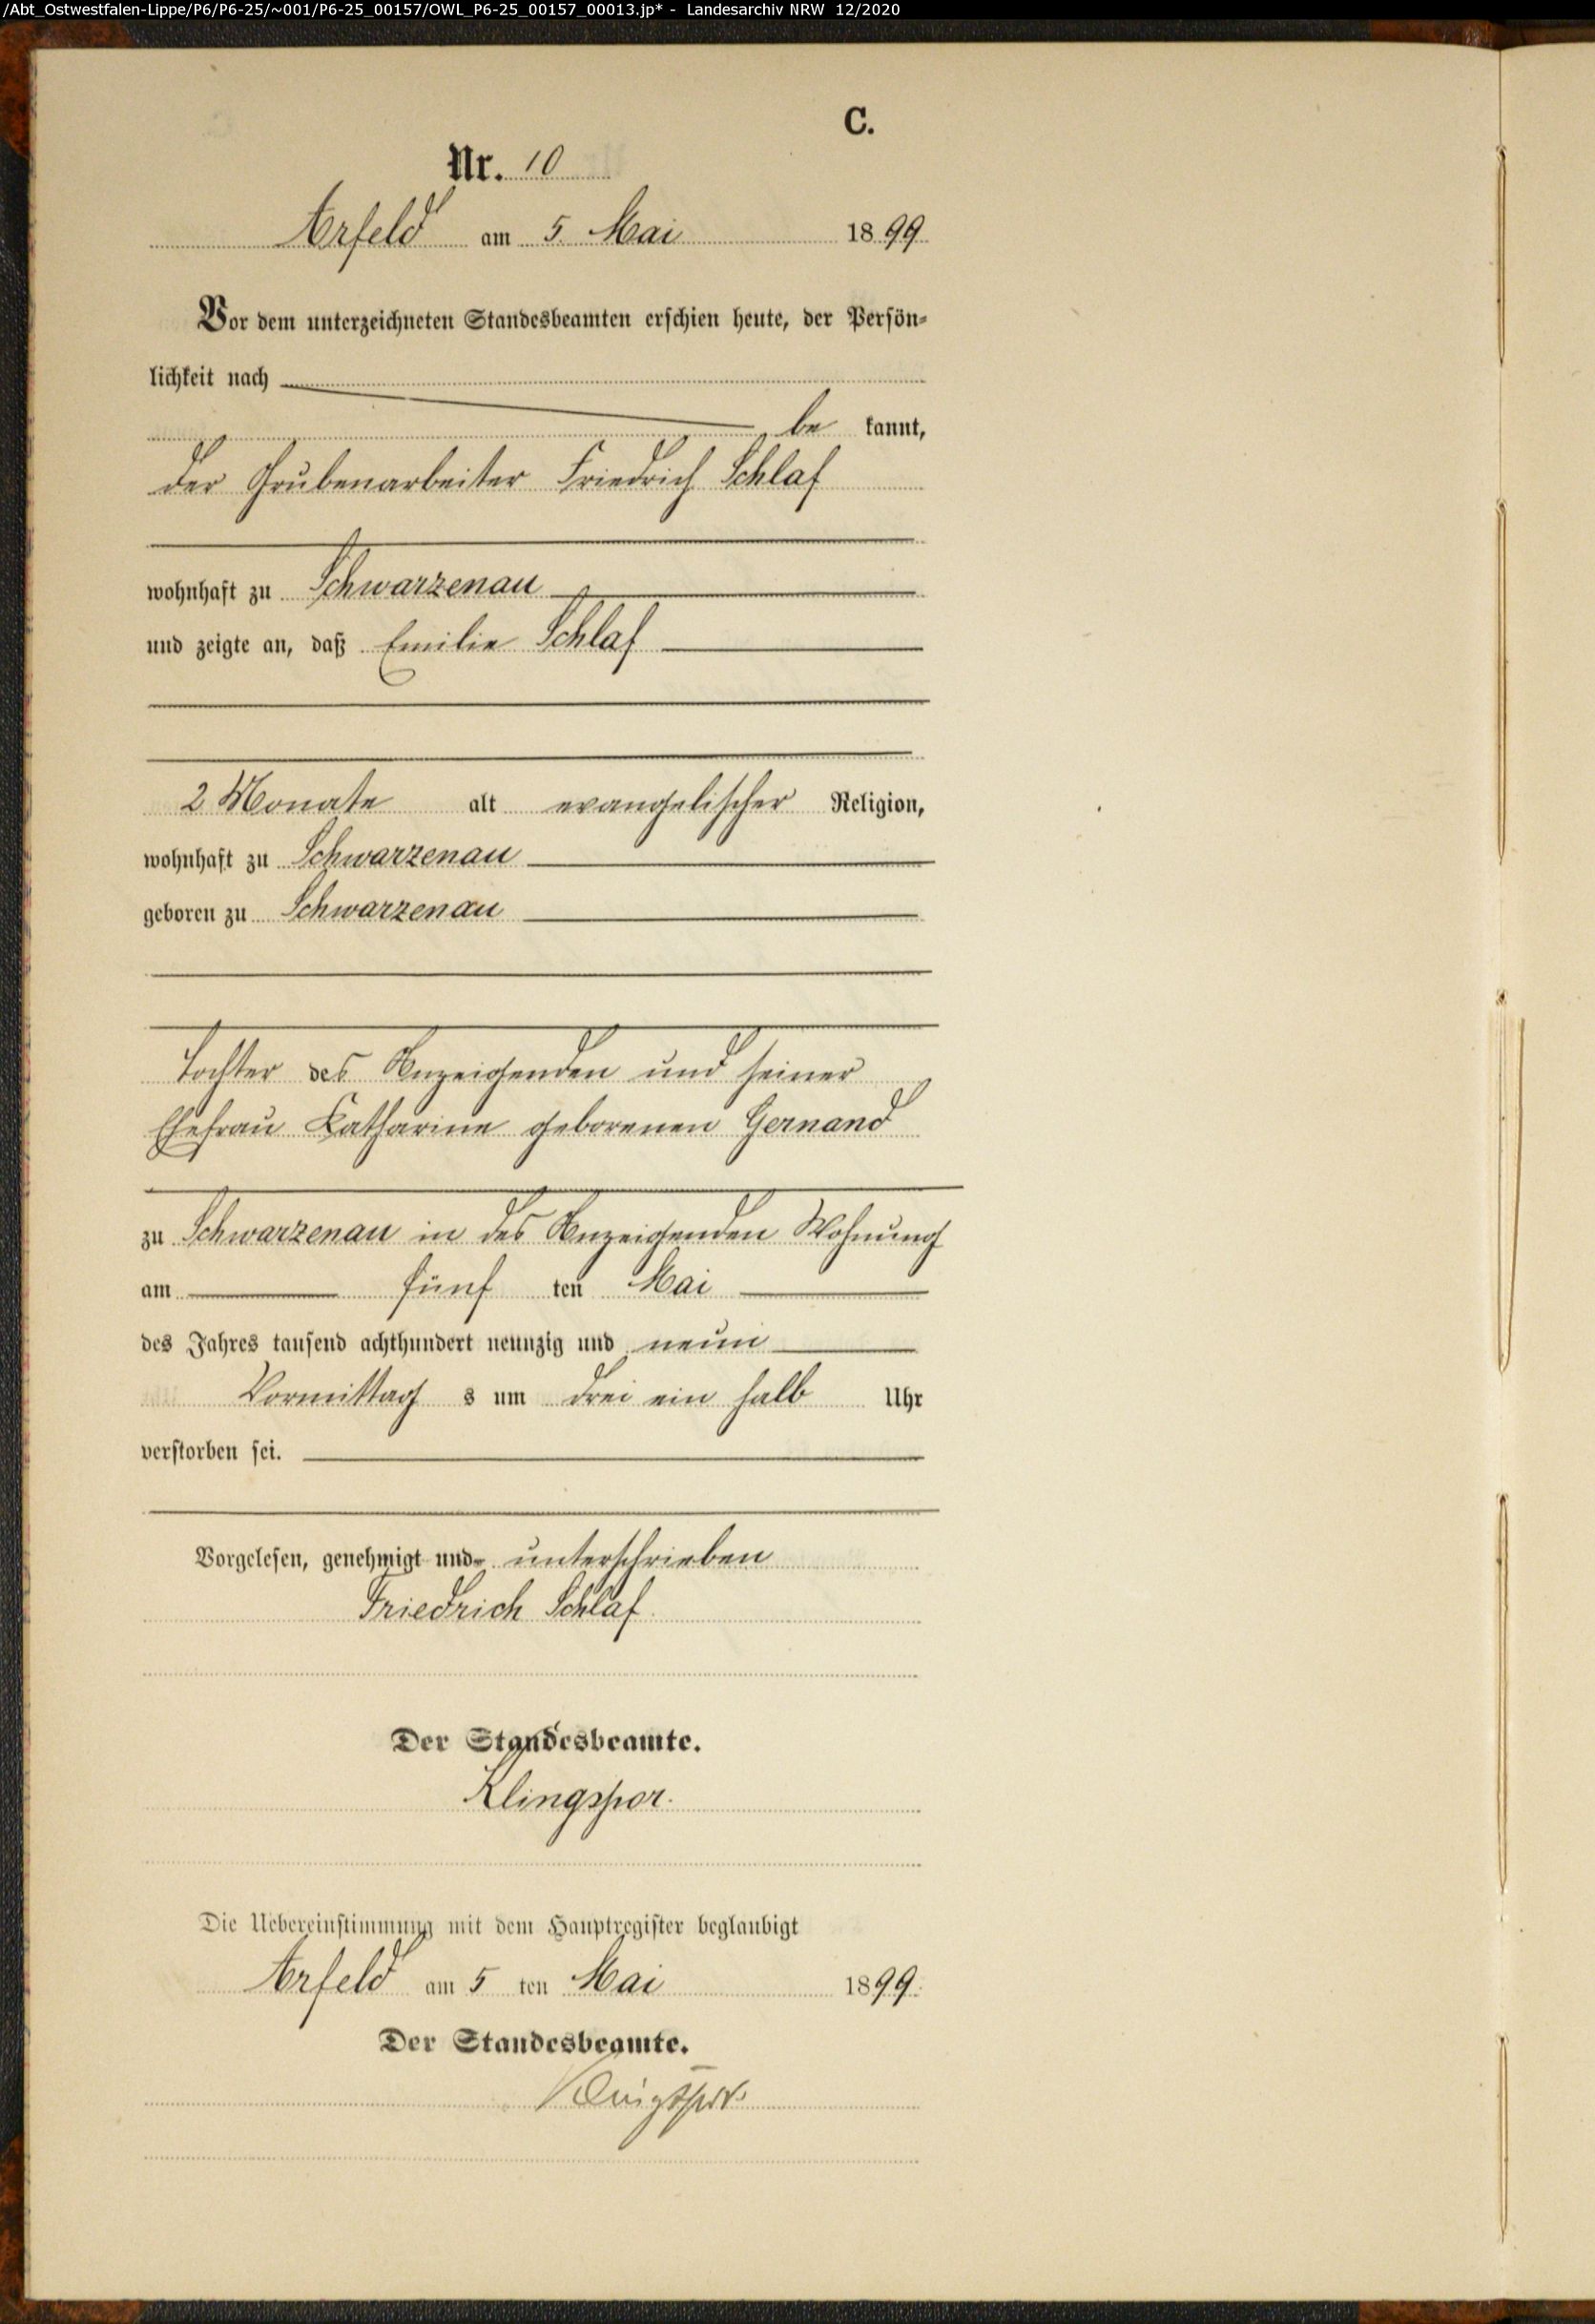 /Abt_Ostwestfalen-Lippe/P6/P6-25/~001/P6-25_00157/OWL_P6-25_00157_00013.jp* - Landesarchiv NRW 12/2020
C.
Nr. 10
Arfeld am 5. Mai 1899.
Vor dem unterzeichneten Standesbeamten erschien heute, der Persön-
lichkeit nach
be kannt,
der Grubenarbeiter Friedrich Schlaf
wohnhaft zu Schwarzenau
und zeigte an, daß Emilie Schlaf
2 Monate alt evangelischer Religion,
wohnhaft zu Schwarzenau
geboren zu Schwarzenau
Tochter des Anzeigenden und seiner
Ehefrau Katharine geborenen Gernand
zu Schwarzenau in des Anzeigenden Wohnung
am fünf ten Mai
des Jahres tausend achthundert neunzig und neun
Vormittag s um drei ein halb Uhr
verstorben sei.
Vorgelesen, genehmigt und unterschrieben
Friedrich Schlaf.
Der Standesbeamte.
Klingspor.
Die Uebereinstimmung mit dem Hauptregister beglaubigt
Arfeld am 5 ten Mai 1899.
Der Standesbeamte.
Klingspor.